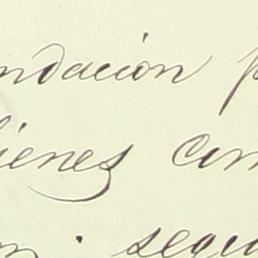 ndación p
ienes com
segu